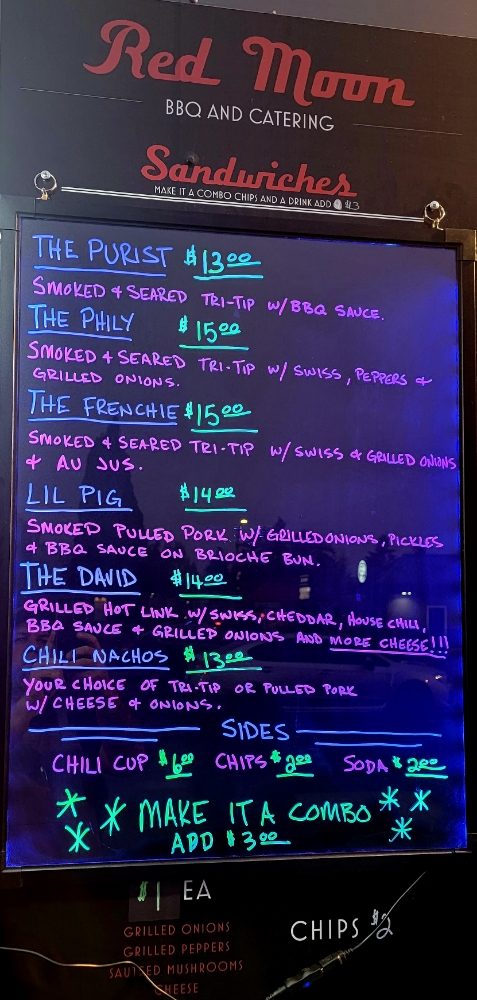 Red Moon
BBQ AND CATERING
Sandwiches
MAKE IT A COMBO CHIPS AND A DRINK ADD $3
THE PURIST $13.00
SMOKED & SEARED TRI-TIP W/ BBQ SAUCE.
THE PHILY $15.00
SMOKED & SEARED TRI-TIP W/ SWISS, PEPPERS &
GRILLED ONIONS.
THE FRENCHIE $15.00
SMOKED & SEARED TRI-TIP W/ SWISS & GRILLED ONIONS
& AU JUS.
LIL PIG $14.00
SMOKED PULLED PORK W/ GRILLED ONIONS, PICKLES
& BBQ SAUCE ON BRIOCHE BUN.
THE DAVID $14.00
GRILLED HOT LINK W/ SWISS, CHEDDAR, HOUSE CHILI,
BBQ SAUCE & GRILLED ONIONS AND MORE CHEESE!!!
CHILI NACHOS $13.00
YOUR CHOICE OF TRI-TIP OR PULLED PORK
W/ CHEESE & ONIONS.
SIDES
CHILI CUP $6.00 CHIPS $2.00 SODA $2.00
MAKE IT A COMBO
ADD $3.00
$1 EA
GRILLED ONIONS
GRILLED PEPPERS
SAUTEED MUSHROOMS
CHEESE
CHIPS $2